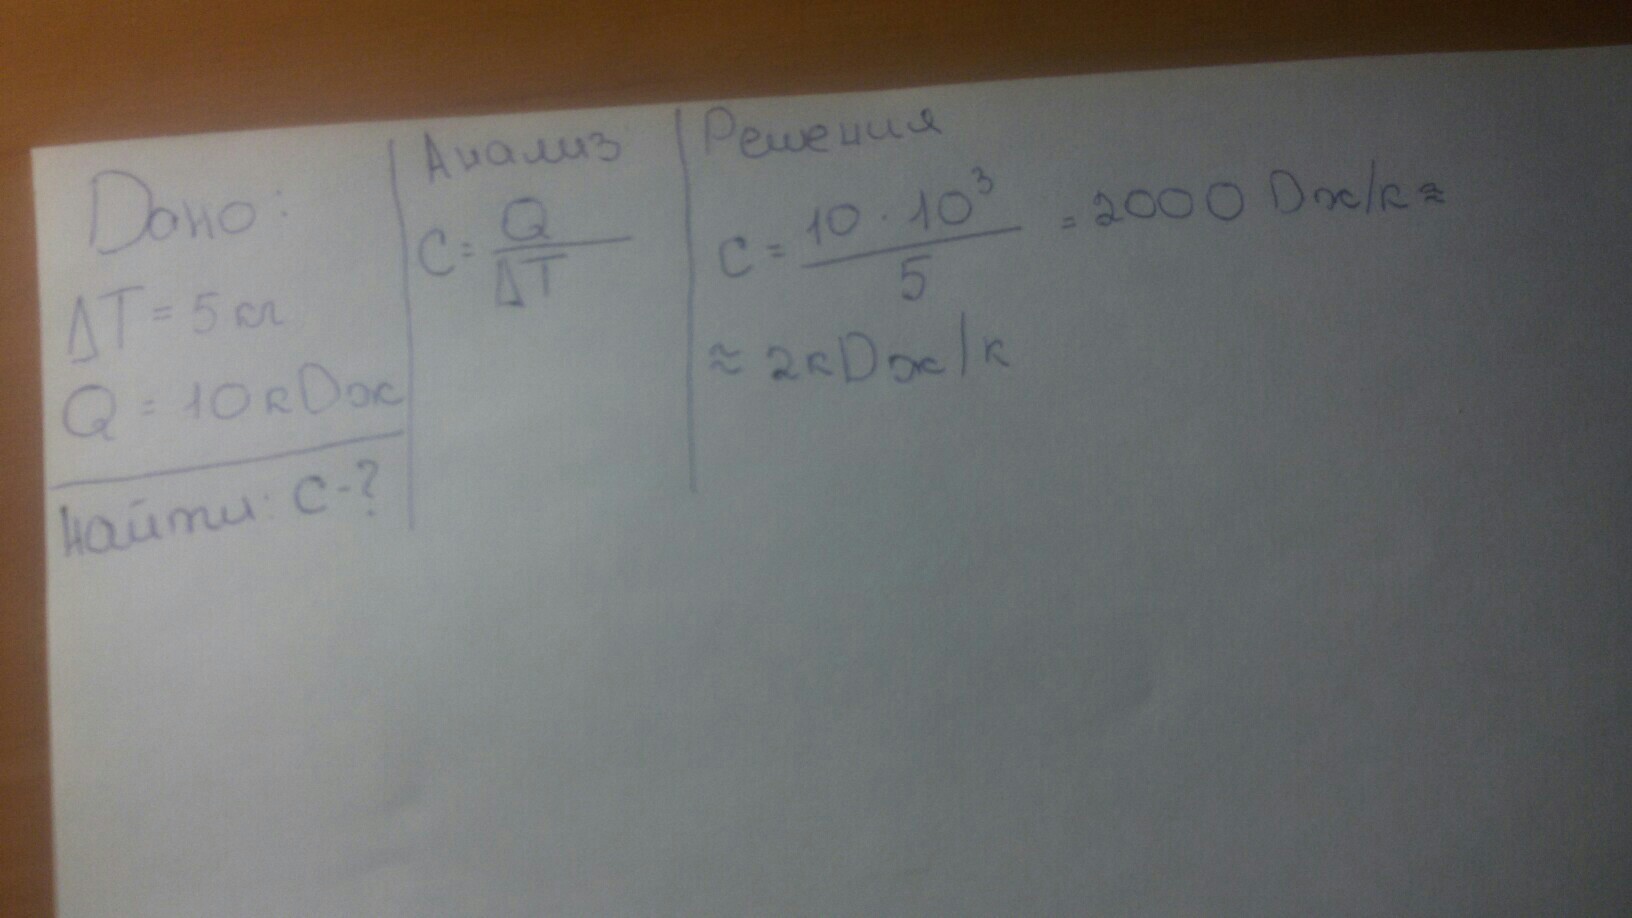 Дано:
ΔT = 5 кг
Q = 10 кДж
Найти: C - ?
Анализ
C = Q / ΔT
Решения
C = 10 · 10³ / 5 = 2000 Дж/к ≈
≈ 2 кДж/к